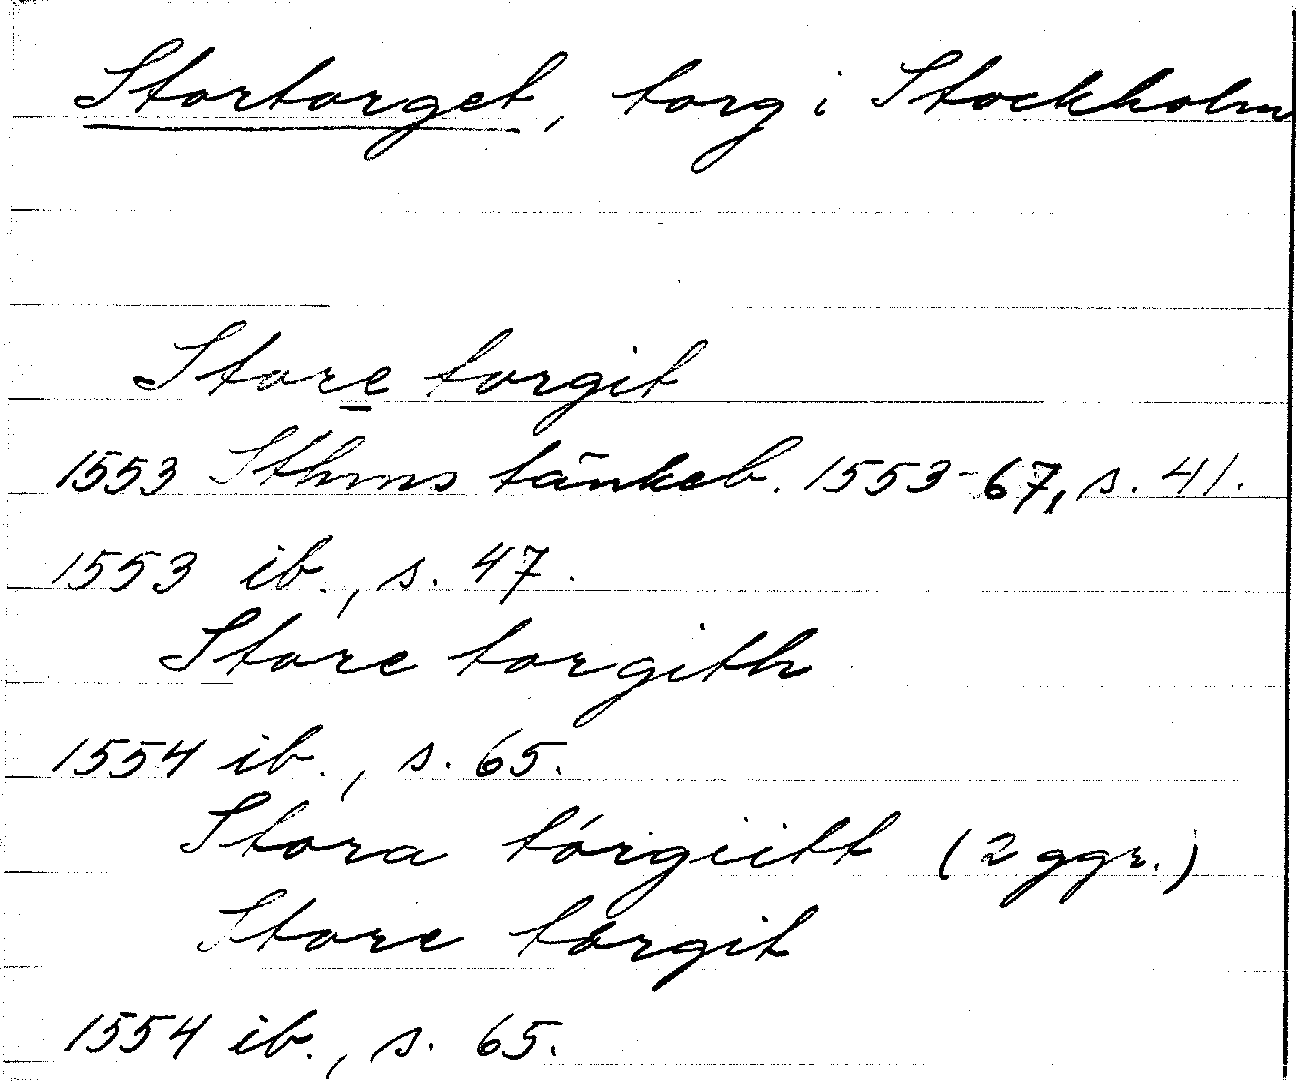 Stortorget, torg i Stockholm
Store torgit
1553 Sthms tänkeb. 1553-67, s. 41.
1553 ib., s. 47.
Store torgith
1554 ib., s. 65.
Stora tórgiitt (2 ggr.)
Store torgit
1554 ib., s. 65.